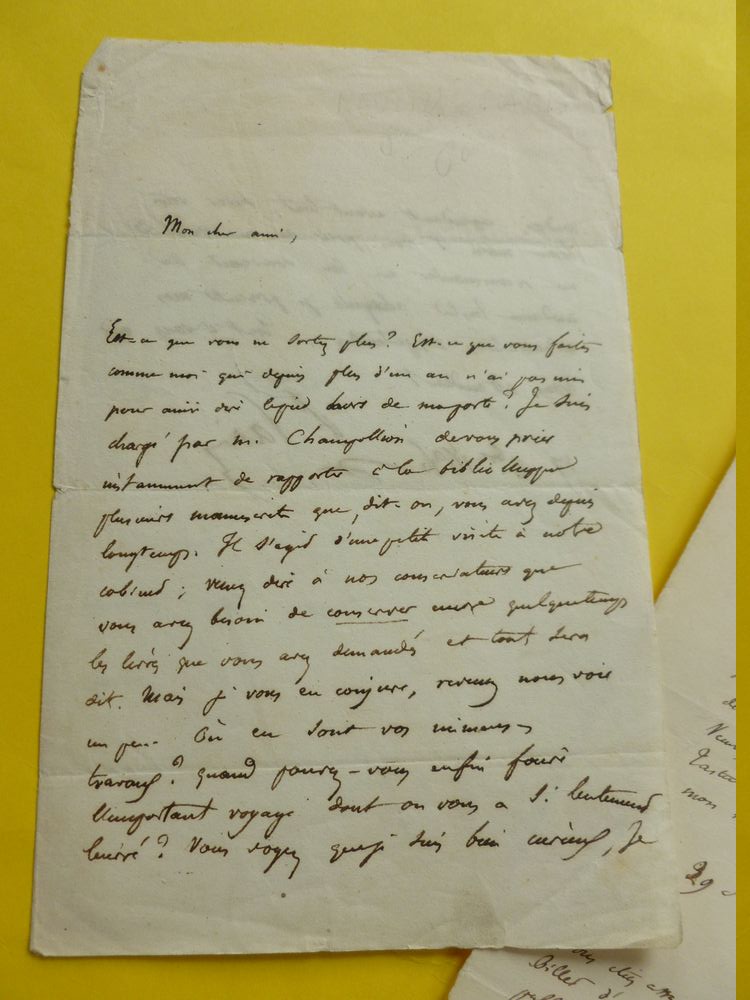 Mon cher ami,
Est-ce que vous ne sortez plus? Est-ce que vous faites
comme moi qui depuis plus d'un an n'ai pas mis
pour ainsi dire le pied hors de ma porte? Je suis
chargé par M. Champollion de vous prier
instamment de rapporter à la bibliothèque
plusieurs manuscrits que, dit-on, vous avez depuis
longtemps. Il s'agid d'une petite visite à notre
cabinet; venez dire à nos conservateurs que
vous avez besoin de conserver encore quelque temps
les livres que vous avez demandés et tout sera
dit. Mais je vous en conjure, revenez nous voir
un peu. Où en sont vos immenses
travaux? quand pourez-vous enfin faire
l'important voyage dont on vous a si lentement
leurré? Vous voyez que je suis bien curieux, Je
29